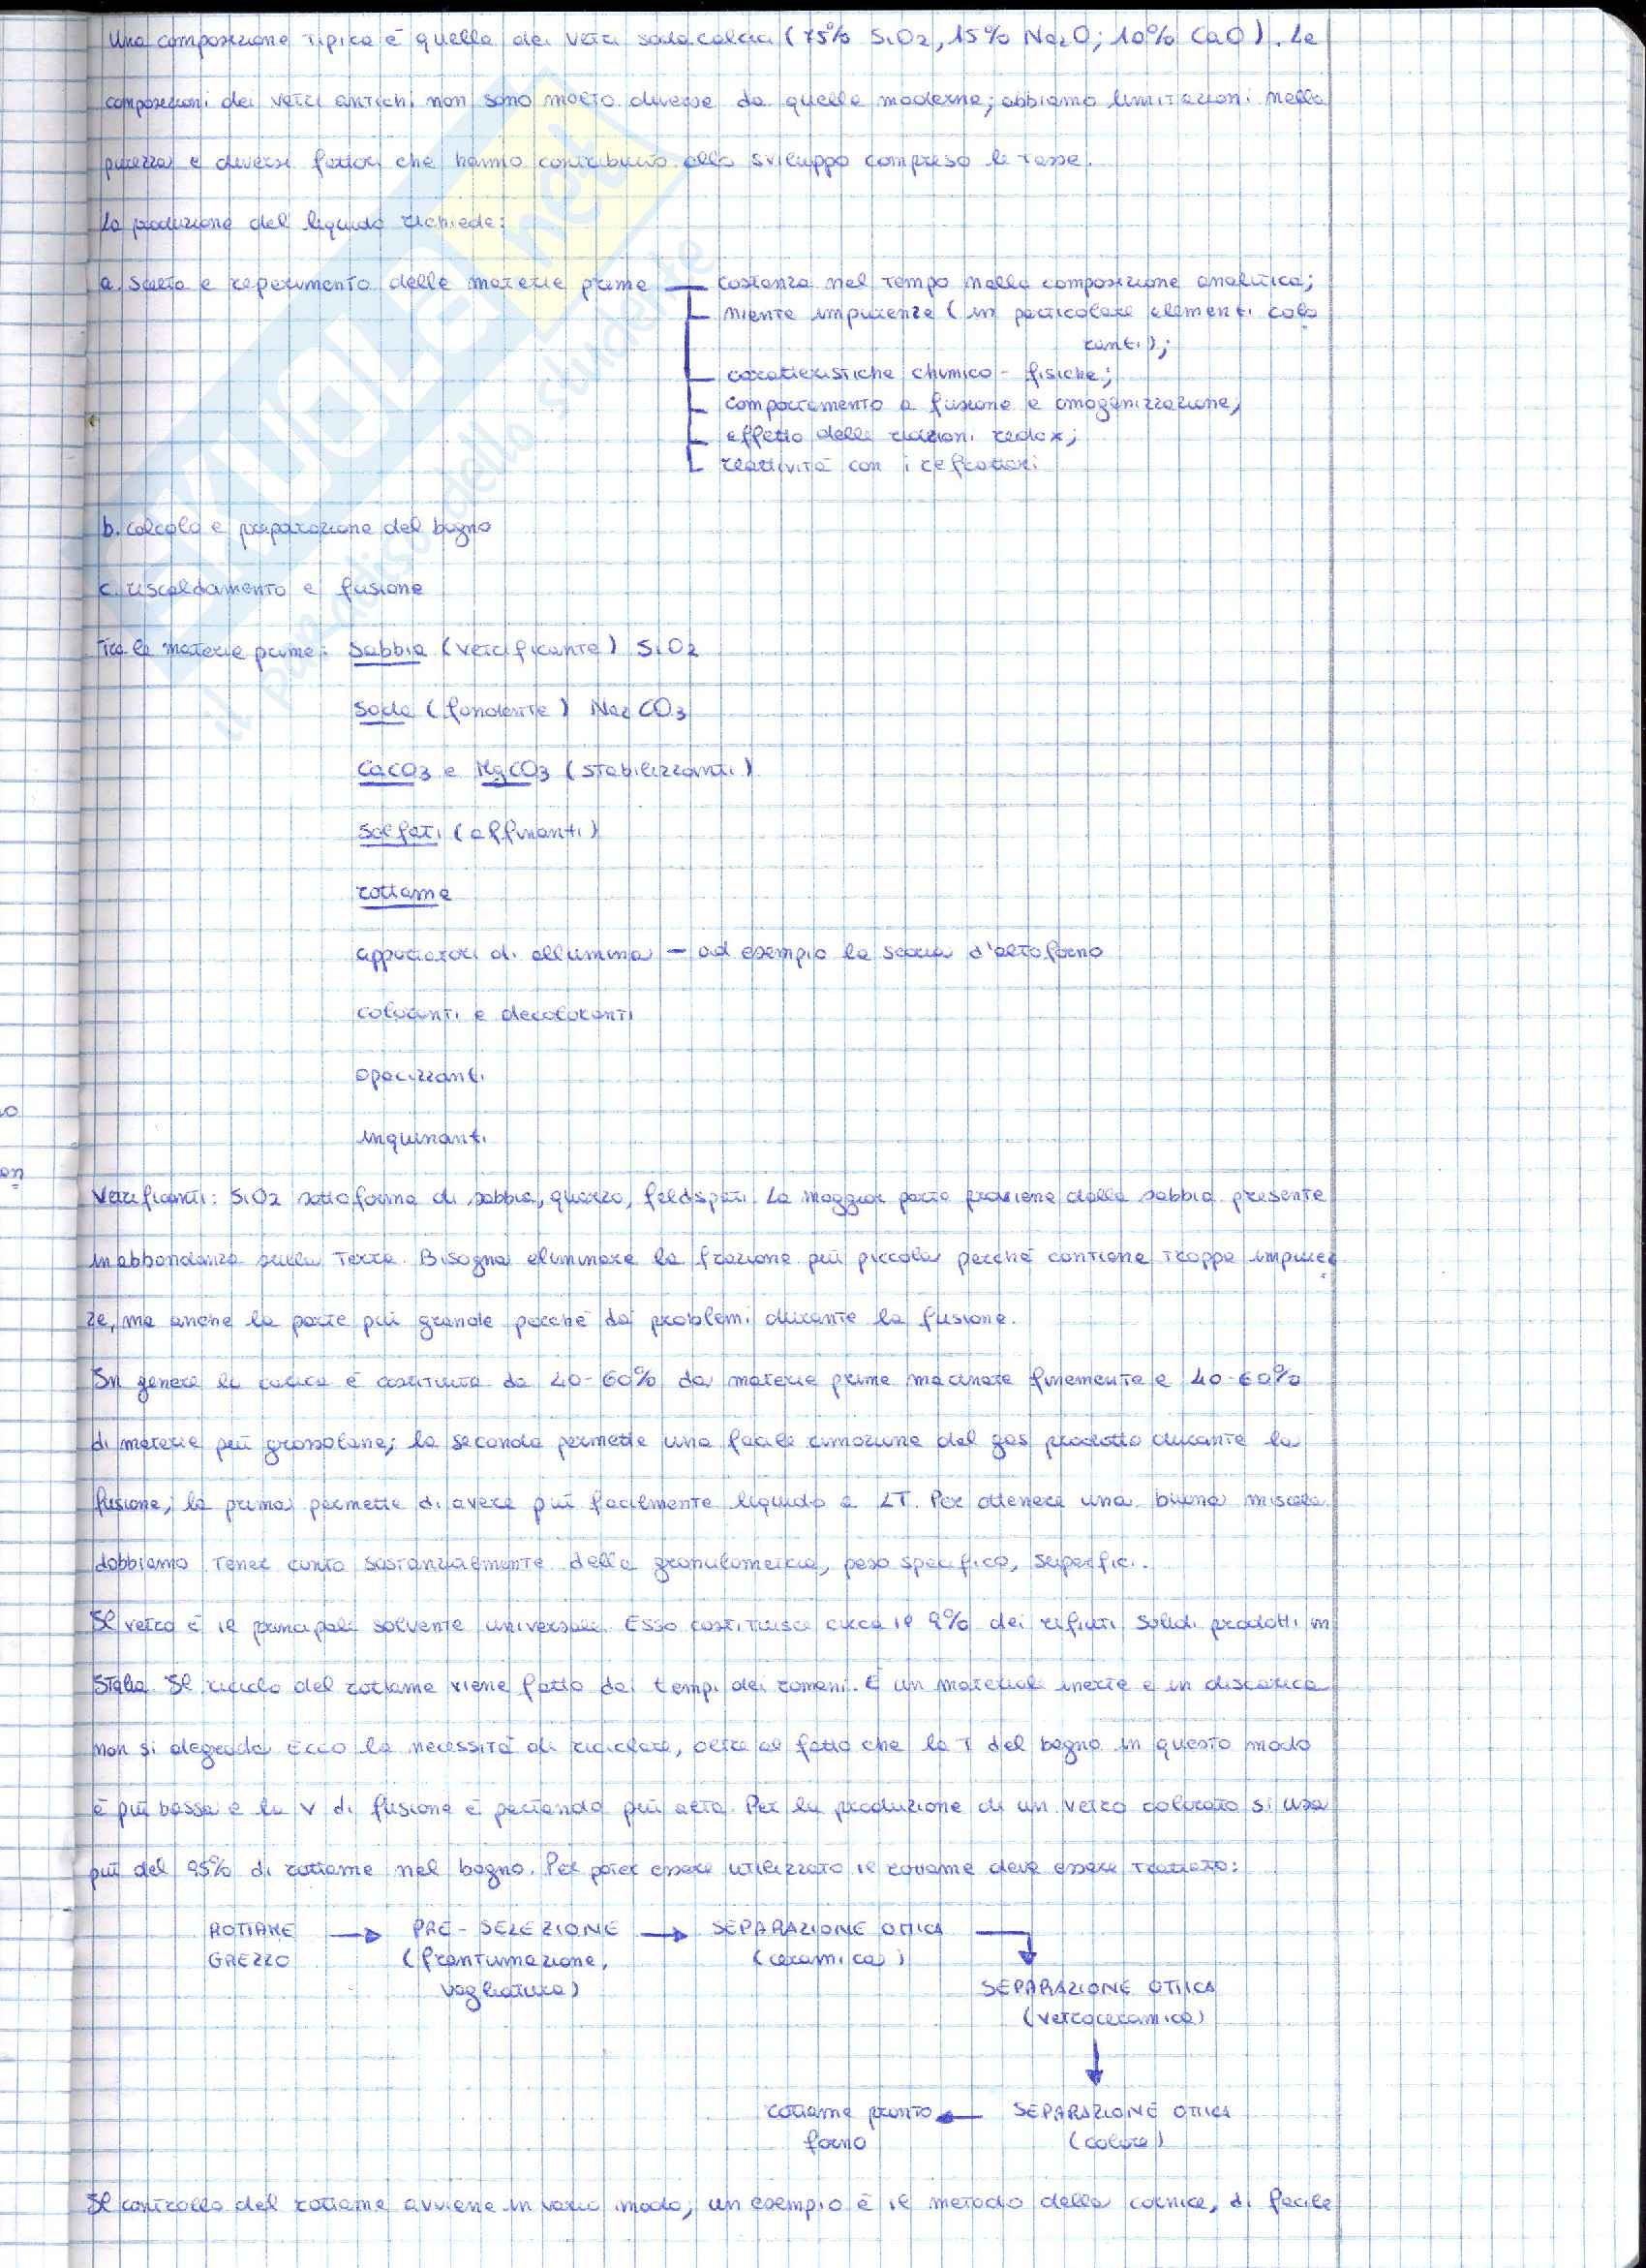 Una composizione tipica è quella dei vetri sodacalcici (75% SiO2, 15% Na2O; 10% CaO). Le
composizioni dei vetri antichi non sono molto diverse da quelle moderne; abbiamo limitazioni nella
purezza e diversi fattori che hanno contribuito allo sviluppo compreso le tasse.
La produzione del liquido richiede:
a. scelta e reperimento delle materie prime — costanza nel tempo nella composizione analitica;
niente impurezze (in particolare elementi colo
ranti);
caratteristiche chimico-fisiche;
comportamento a fusione e omogenizzazione;
effetto delle reazioni redox;
reattività con i refrattari
b. calcolo e preparazione del bagno
c. riscaldamento e fusione
Tra le materie prime: sabbia (vetrificante) SiO2
soda (fondente) Na2CO3
CaCO3 e MgCO3 (stabilizzanti)
solfati (affinanti)
rottame
apportatori di allumina — ad esempio la scoria d'altoforno
coloranti e decoloranti
opacizzanti
inquinanti
Vetrificanti: SiO2 sottoforma di sabbia, quarzo, feldspati. La maggior parte proviene dalla sabbia presente
in abbondanza sulla Terra. Bisogna eliminare la frazione più piccola perchè contiene troppe impurez
ze, ma anche la parte più grande perchè dà problemi durante la fusione.
In genere la carica è costituita da 40-60% da materie prime macinate finemente e 40-60%
di materie più grossolane; la seconda permette una facile rimozione del gas prodotto durante la
fusione; la prima permette di avere più facilmente liquido a LT. Per ottenere una buona miscela
dobbiamo tener conto sostanzialmente della granulometria, peso specifico, superfici.
Il vetro è il principale solvente universale. Esso costituisce circa il 9% dei rifiuti solidi prodotti in
Italia. Il riciclo del rottame viene fatto dai tempi dei romani. È un materiale inerte e in discarica
non si degrada. Ecco la necessità di riciclare, oltre al fatto che la T del bagno in questo modo
è più bassa e la v di fusione è pertanto più alta. Per la produzione di un vetro colorato si usa
più del 95% di rottame nel bagno. Per poter essere utilizzato il rottame deve essere trattato:
ROTTAME → PRE-SELEZIONE → SEPARAZIONE OTTICA
GREZZO (frantumazione, (ceramica)
vagliatura) SEPARAZIONE OTTICA
(vetroceramica)
rottame pronto ← SEPARAZIONE OTTICA
forno (colore)
Il controllo del rottame avviene in vario modo; un esempio è il metodo della cornice, di facile